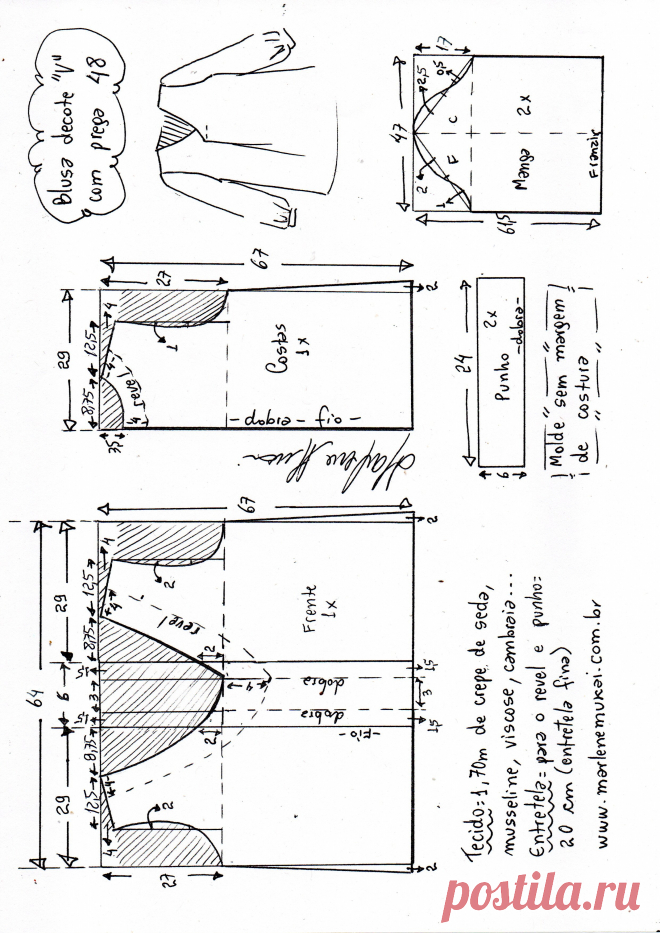 Blusa decote "V"
com prega 48
17
47
2,5
0,5
C
F
2
1
Manga 2x
Franzir
61,5
67
27
29
8,75
12,5
4
4
revel
4
3,5
1
Costas
1x
- fio - dobra -
2
24
6
Punho 2x
- dobra -
Molde sem margem
de costura
67
64
29
6
29
12,5
8,75
1,5
3
1,5
8,75
12,5
4
4
4
4
2
2
2
2
4
revel
27
Frente
1x
dobra
dobra
- fio -
2
1,5
3
1,5
2
Tecido = 1,70m de crepe de seda,
musseline, viscose, cambraia...
Entretela = para o revel e punho:
20 cm (entretela fina)
www.marlenemukai.com.br
postila.ru